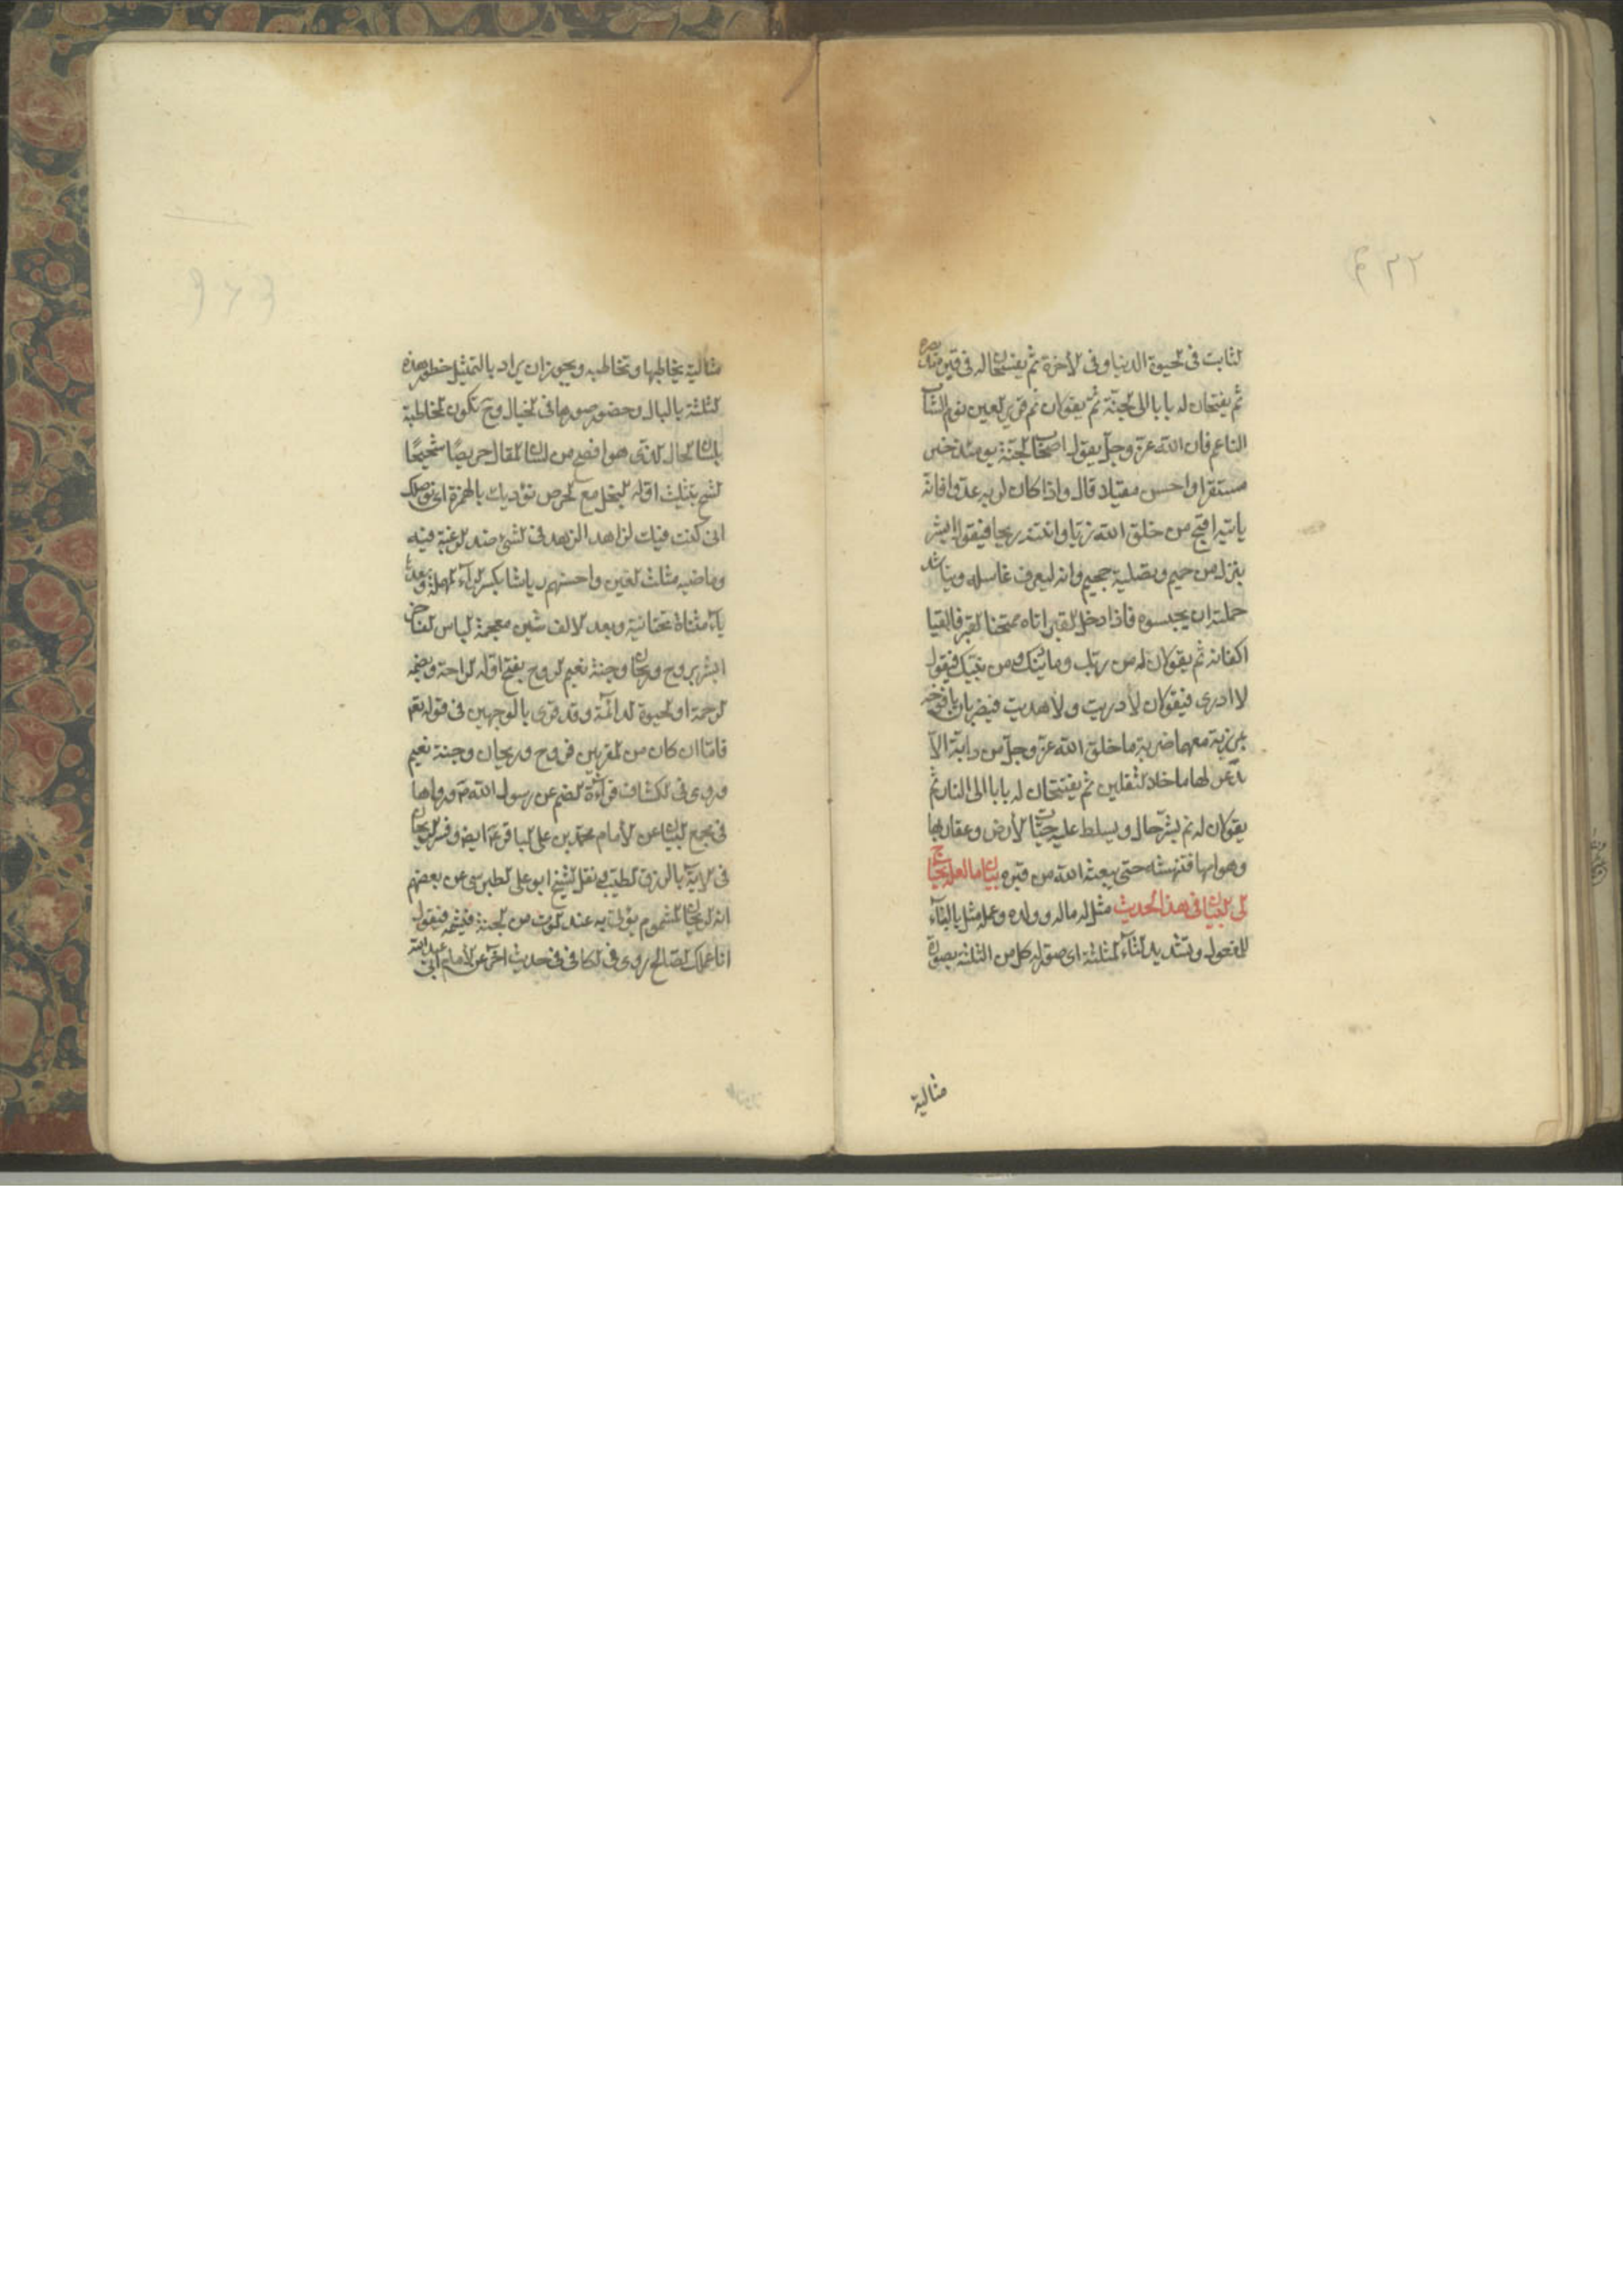 لثابت فى لحيوة الدنيا وفى لأخرة ثم يفسحان له فى قبره مد بصره
ثم يفتحان له بابا الى لجنة ثم يقولان نم قرير لعين نوم الشاب
الناعم فان الله عز وجل يقول اصحاب لجنة يومئذ خير
مستقرا واحسن مقيلا قال واذا كان لربه عدوا فانه
ياتيه اقبح من خلق الله زيا وانتنه ريحا فيقول ابشر
بنزل من حميم وتصلية جحيم وانه ليعرف غاسله ويناشد
حملته ان يحبسوه فاذا دخل لقبر اتاه ممتحنا لقبر فالقيا
اكفانه ثم يقولان له من ربك وما دينك ومن نبيك فيقول
لا ادرى فيقولان لا دريت ولا هديت فيضربان يافوخه
بمرزبة معهما ضربة ما خلق الله عز وجل من دابة الا
تذعر لها ما خلا لثقلين ثم يفتحان له بابا الى النار ثم
يقولان له نم بشر حال ويسلط عليه حيات لأرض وعقاربها
وهوامها فتنهشه حتى يبعثه الله من قبره بيان ما لعله يحتاج
لى لبيان فى هذا لحديث مثل له ماله وولده وعمله مثل بالبناء
للمفعول وتشديد لثاء لمثلثة اى صور له كل من الثلثة بصورة
مثالية
مثالية يخاطبها وتخاطبه ويجوز ان يراد بالتمثيل خطور هذه
لثلثة بالبال وحضور صورها فى لخيال وح تكون لمخاطبة
بلسان لحال لذى هو افصح من لسان لمقال حريصا شحيحا
لشح بتثليث اوله لبخل مع لحرص نؤديك بالهمزة اى نوصلك
انى كنت فيك لزاهدا الزهد فى لشئ ضد لرغبة فيه
وماضيه مثلث لعين واحسنهم رياشا بكسر لراء لمهملة وبعدها
ياء مثناة تحتانية وبعد لالف شين معجمة لباس لفاخر
ابشر بروح وريحان وجنة نعيم لروح بفتح اوله لراحة وبضمه
لرحمة او لحيوة لدائمة وقد قرى بالوجهين فى قوله تعم
فاما ان كان من لمقربين فروح وريحان وجنة نعيم
وروى فى لكشاف قراءة لضم عن رسول الله ص ورواها
فى مجمع لبيان عن لأمام محمد بن على لباقر ع ايض وفسر لريحان
فى لاية بالرزق لطيب نقل لشيخ ابو على لطبرسى عن بعضهم
انه لريحان لمشموم يؤتى به عند لموت من لجنة فيشمه فيقول
انا عملك لصالح روى فى لكافى فى حديث اخر عن لأمام ابى عبد الله